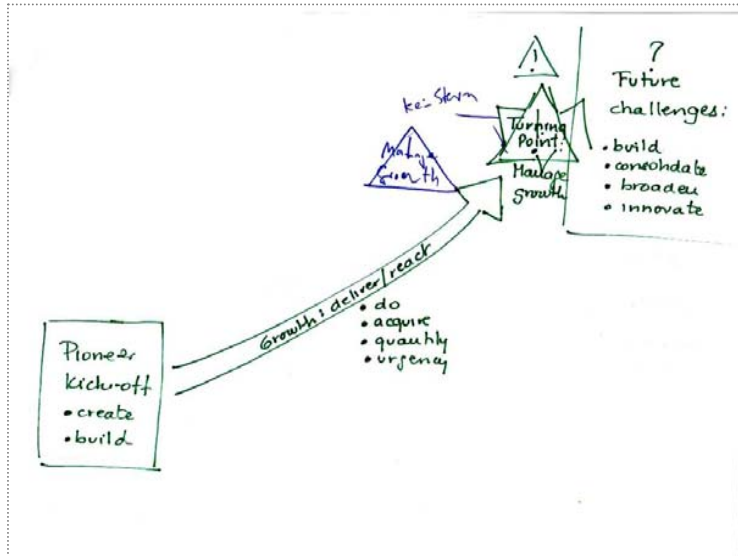 !
?
Future
challenges:
• build
• consolidate
• broaden
• innovate
Turning
Point:
Manage
Growth
Manage
Growth
Growth: deliver/react
• do
• acquire
• quantity
• urgency
Pioneer
kick-off
• create
• build